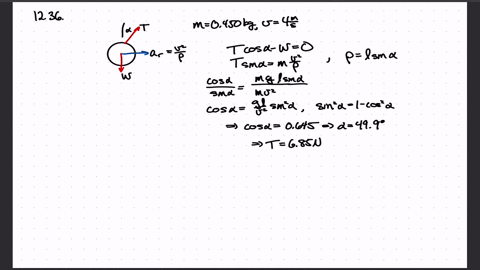 12.36.
α T
m=0.450kg, v=4 m/s
a_r = v²/ρ
W
Tcosα-W=0
Tsinα=m v²/ρ , ρ=lsinα
cosα/sinα = mglsinα/mv²
cosα= gl/v² sin²α, sin²α=1-cos²α
⇒ cosα=0.645 ⇒ α=49.9°
⇒ T=6.85N